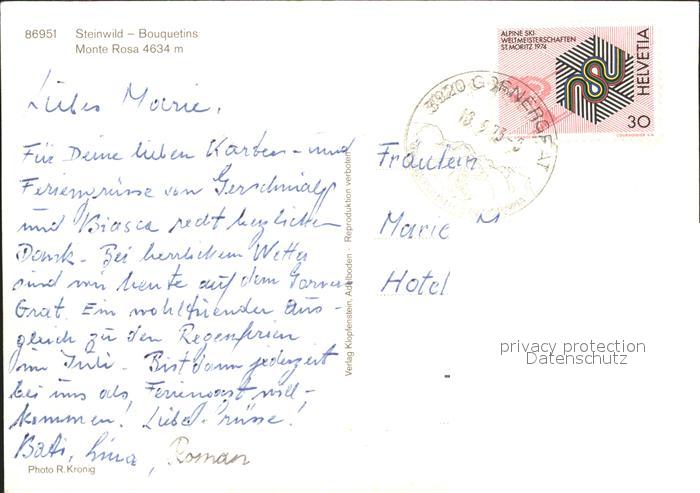 86951 Steinwild – Bouquetins
Monte Rosa 4634 m
Liebes Marie,
Für Deine lieben Karten- und
Feriengrüsse von Gerschnialp
und Biasca recht herzlichen
Dank. Bei herrlichem Wetter
sind wir heute auf dem Gorner
Grat. Ein wohltuender Aus-
gleich zu den Regenferien
im Juli. Bist dann jederzeit
bei uns als Feriengast will-
kommen! Liebe Grüsse!
Lina, Roman
Photo R. Kronig
Verlag Klopfenstein, Adelboden · Reproduktion verboten
ALPINE SKI-
WELTMEISTERSCHAFTEN
ST. MORITZ 1974
HELVETIA
30
COURVOISIER S.A.
3920 GORNERGRAT
Fräulein
Marie M
Hotel
privacy protection
Datenschutz